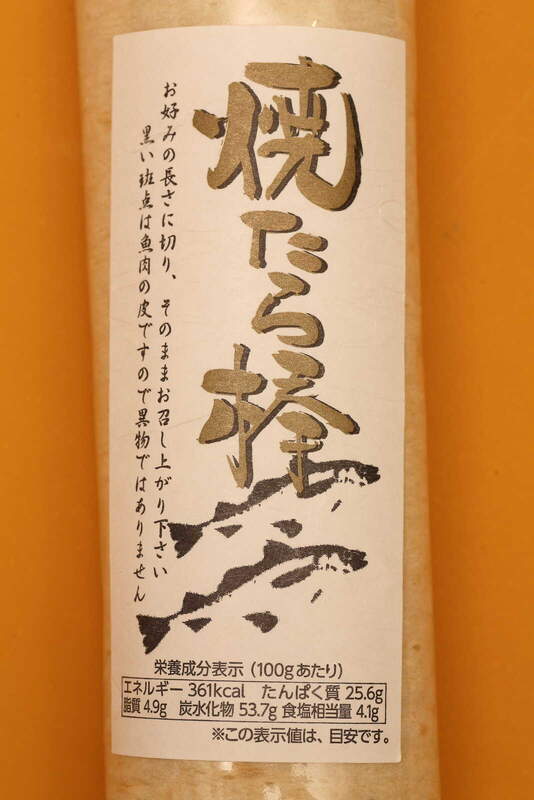 焼たら棒
お好みの長さに切り、そのままお召し上がり下さい
黒い斑点は魚肉の皮ですので異物ではありません
栄養成分表示（100gあたり）
エネルギー 361kcal たんぱく質 25.6g
脂質 4.9g 炭水化物 53.7g 食塩相当量 4.1g
※この表示値は、目安です。